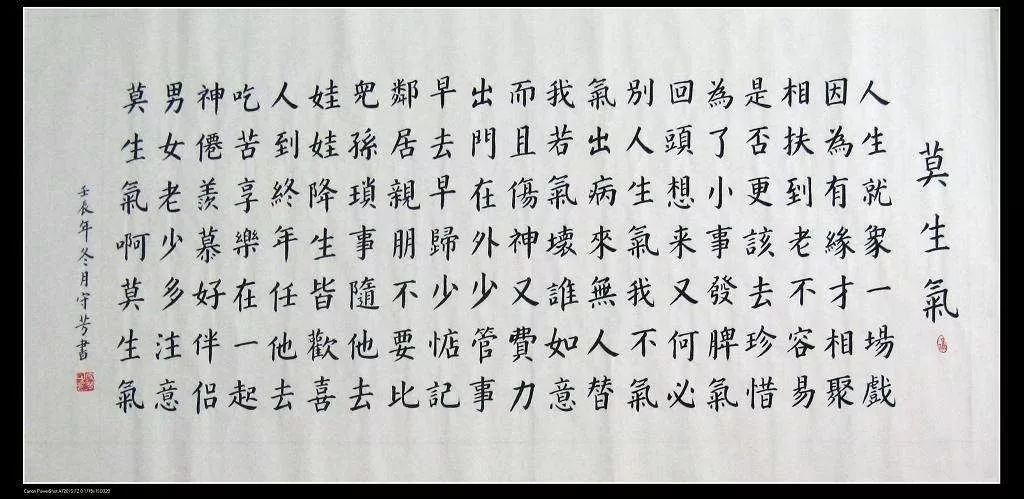 莫生氣
人生就象一場戲
因為有緣才相聚
相扶到老不容易
是否更該去珍惜
為了小事發脾氣
回頭想来又何必
別人生氣我不氣
氣出病來無人替
我若氣壞誰如意
而且傷神又費力
出門在外少管事
早去早歸少惦記
鄰居親朋不要比
兒孫瑣事隨他去
娃娃降生皆歡喜
人到終年任他去
吃苦享樂在一起
神僊羨慕好伴侶
男女老少多注意
莫生氣啊莫生氣
壬辰年冬月守芳書